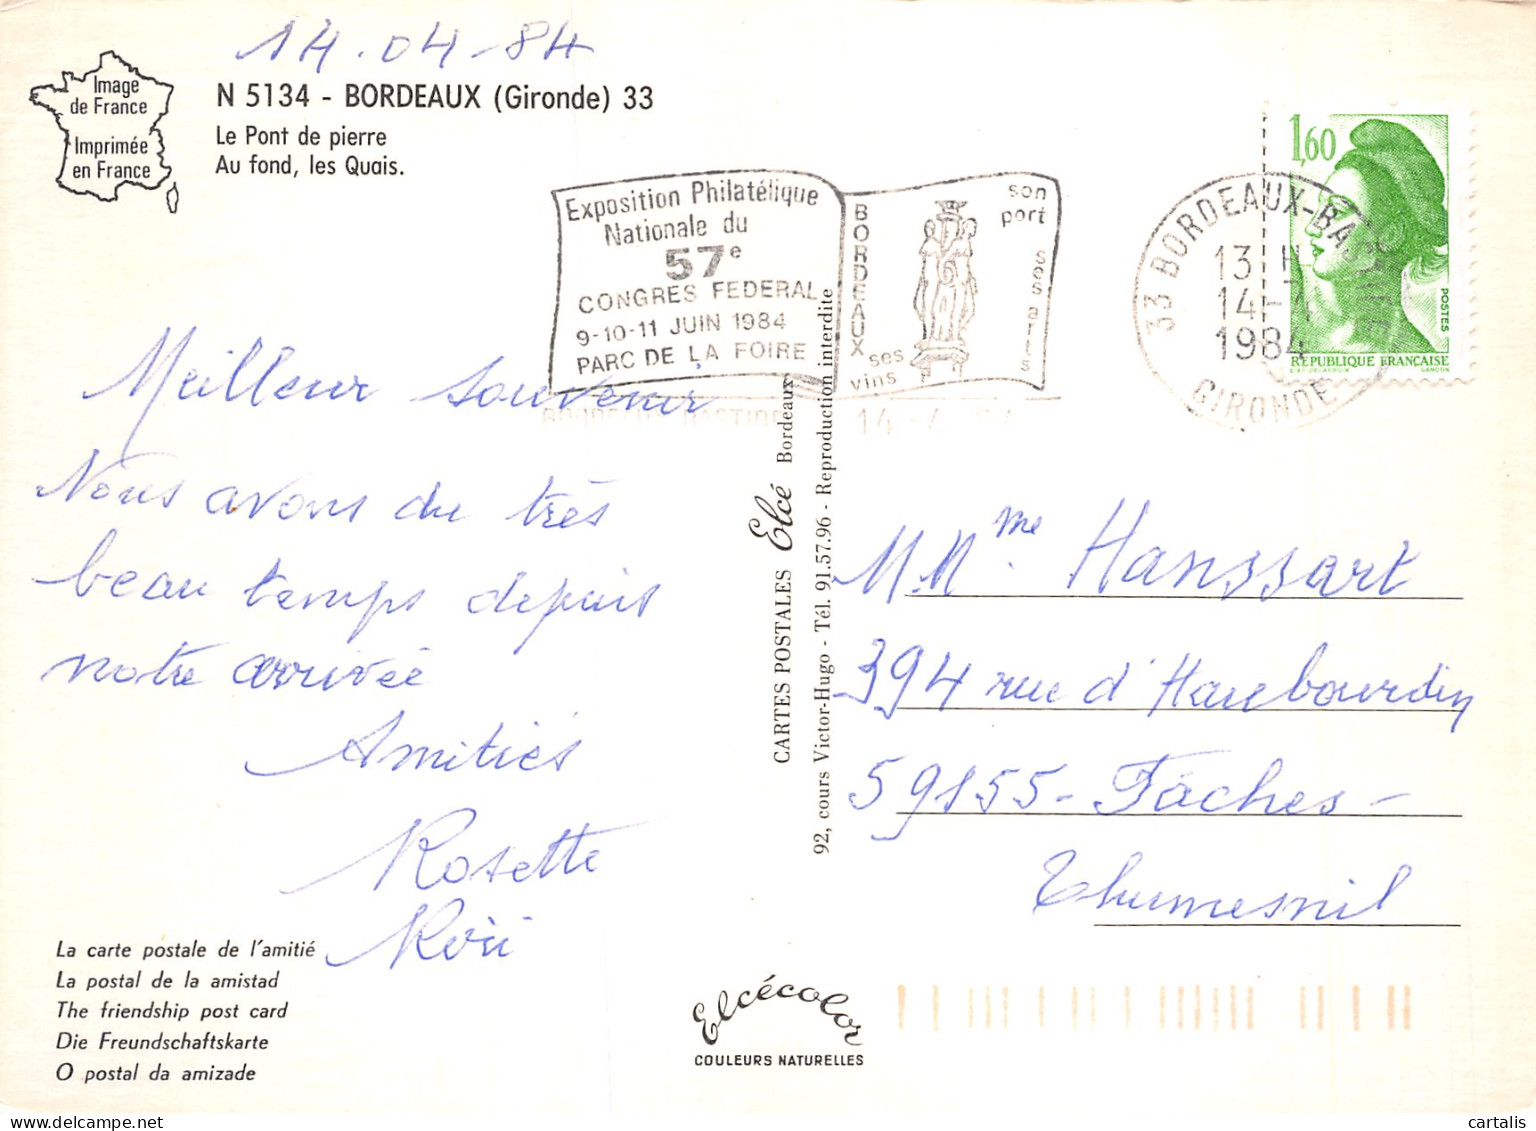 14.04-84
Image
de France
Imprimée
en France
N 5134 - BORDEAUX (Gironde) 33
Le Pont de pierre
Au fond, les Quais.
Exposition Philatélique
Nationale du
57e
CONGRES FEDERAL
9-10-11 JUIN 1984
PARC DE LA FOIRE
BORDEAUX
son
port
ses arts
ses
vins
BORDEAUX BASTIDE 14-4-84
33 BORDEAUX-BASTIDE
13 H
14-4
1984
GIRONDE
1,60
POSTES
REPUBLIQUE FRANÇAISE
Meilleur souvenir
Nous avons du très
beau temps depuis
notre arrivée
Amitiés
Rosette
CARTES POSTALES Elcé Bordeaux
92, cours Victor-Hugo - Tél. 91.57.96 - Reproduction interdite
M.Mme. Hanssart
394 rue d'Haubourdin
59155- Fâches-
Thumesnil
La carte postale de l'amitié
La postal de la amistad
The friendship post card
Die Freundschaftskarte
O postal da amizade
Elcécolor
COULEURS NATURELLES
cartalis